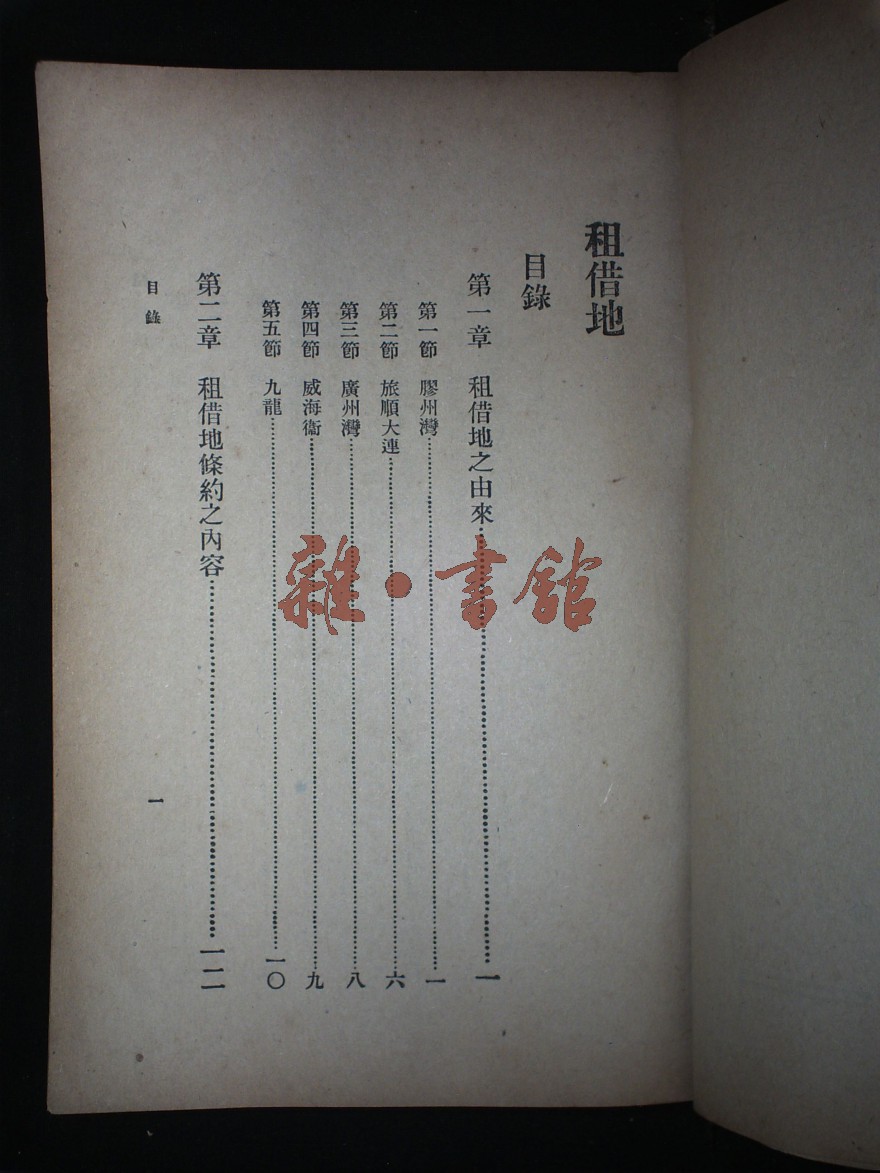 租借地
目錄
第一章 租借地之由來……一
第一節 膠州灣……一
第二節 旅順大連……六
第三節 廣州灣……八
第四節 威海衞……九
第五節 九龍……一〇
第二章 租借地條約之內容……一二
目錄
一
雜·書舘